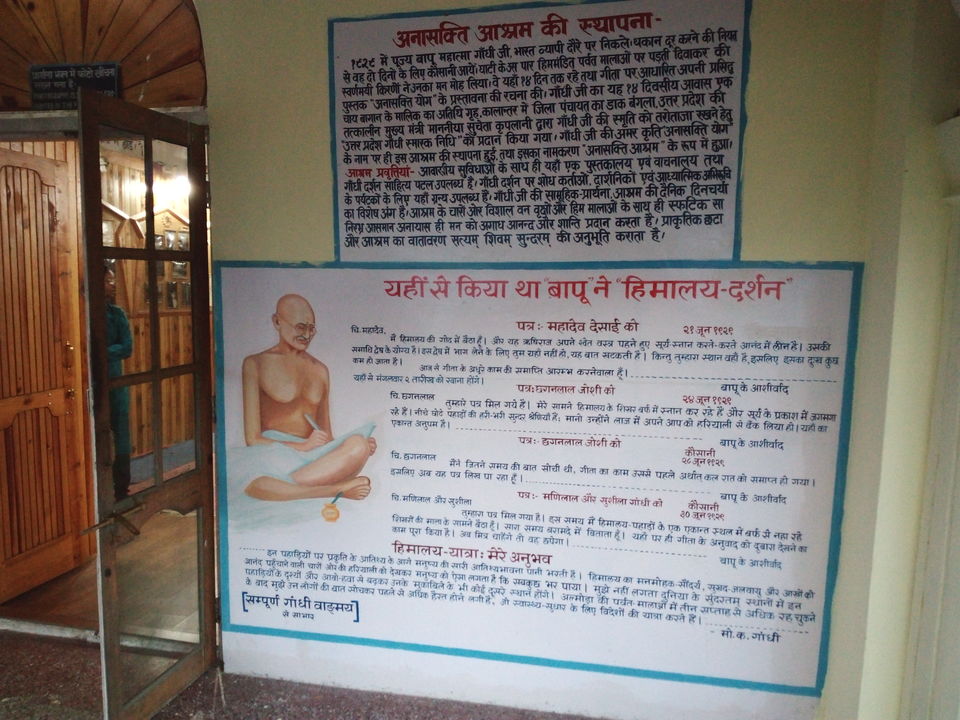 प्रार्थना भवन में फोटो खींचना
सख्त मना है
अनासक्ति आश्रम की स्थापना-
१९२९ में पूज्य बापू महात्मा गाँधी जी, भारत व्यापी दौरे पर निकले। थकान दूर करने की नियत
से वह दो दिनों के लिए कौसानी आये। घाटी के उस पार हिममंडित पर्वत मालाओं पर पड़ती दिवाकर की
स्वर्णमयी किरणों ने उनका मन मोह लिया। वे यहाँ १४ दिन तक रहे तथा गीता पर आधारित अपनी प्रसिद्ध
पुस्तक "अनासक्ति योग" के प्रस्तावना की रचना की। गाँधी जी का यह १४ दिवसीय आवास एक
चाय बागान के मालिक का अतिथि गृह, कालान्तर में जिला पंचायत का डाक बंगला, उत्तर प्रदेश की
तत्कालीन मुख्य मंत्री माननीया सुचेता कृपलानी द्वारा गाँधी जी की स्मृति को तरोताजा रखने हेतु
"उत्तर प्रदेश गाँधी स्मारक निधि" को प्रदान किया गया। गाँधी जी की अमर कृति "अनासक्ति योग"
के नाम पर ही इस आश्रम की स्थापना हुई, तथा इसका नामकरण "अनासक्ति आश्रम" के रूप में हुआ।
आश्रम प्रवृत्तियां- आवासीय सुविधाओं के साथ ही यहाँ एक पुस्तकालय एवं वाचनालय तथा
गाँधी दर्शन साहित्य पटल उपलब्ध है। गाँधी दर्शन पर शोध कर्ताओं, दार्शनिकों एवं आध्यात्मिक अभिरूचि
के पर्यटकों के लिए यहाँ ग्रन्थ उपलब्ध हैं। गाँधी जी की सामूहिक-प्रार्थना, आश्रम की दैनिक दिनचर्या
का विशेष अंग है। आश्रम के चारों ओर विशाल वन वृक्षों और हिम मालाओं के साथ ही स्फटिक सा
निरभ्र आसमान अनायास ही मन को अगाध आनन्द और शान्ति प्रदान करता है। प्राकृतिक छटा
और आश्रम का वातावरण सत्यम् शिवम् सुन्दरम् की अनुभूति कराता है।
यहीं से किया था "बापू" ने "हिमालय-दर्शन"
पत्र:- महादेव देसाई को २१ जून १९२९
चि. महादेव,
में हिमालय की गोद में बैठा हूँ। और यह ऋषिराज अपने श्वेत वस्त्र पहने हुए सूर्य-स्नान करते-करते आनंद में लीन है। उसकी
समाधि द्वेष के योग्य है। इस द्वेष में भाग लेने के लिए तुम यहाँ नहीं हो, यह बात खटकती है। किन्तु तुम्हारा स्थान वहाँ है, इसलिए इसका दुःख कुछ
कम हो जाता है।
आज से गीता के अधूरे काम की समाप्ति आरम्भ करनेवाला हूँ।
यहाँ से मंगलवार २ तारीख को रवाना होंगे। बापू के आशीर्वाद
पत्र:- छगनलाल जोशी को २४ जून १९२९
चि. छगनलाल
तुम्हारे पत्र मिल गये हैं। मेरे सामने हिमालय के शिखर बर्फ में स्नान कर रहे हैं और सूर्य के प्रकाश में जगमगा
रहे हैं। नीचे छोटे पहाड़ों की हरी-भरी सुन्दर श्रेणियाँ हैं; मानो उन्होंने लाज में अपने आप को हरियाली से ढँक लिया हो। यहाँ का
एकान्त अनुपम है। बापू के आशीर्वाद
पत्र:- छगनलाल जोशी को कौसानी
२८ जून १९२९
चि. छगनलाल
मैंने जितने समय की बात सोची थी, गीता का काम उससे पहले अर्थात् कल रात को समाप्त हो गया।
इसलिए अब यह पत्र लिख पा रहा हूँ। बापू के आशीर्वाद
पत्र:- मणिलाल और सुशीला गाँधी को कौसानी
३० जून १९२९
चि. मणिलाल और सुशीला
तुम्हारा पत्र मिल गया है। इस समय में हिमालय-पहाड़ों के एक एकान्त स्थल में बर्फ से नहा रहे
शिखरों की माला के सामने बैठा हूँ। सारा समय बरामदे में बिताता हूँ। यहाँ पर ही गीता के अनुवाद को दुबारा देखने का
काम पूरा किया है। अब मित्र चाहेंगे तो वह छपेगा। बापू के आशीर्वाद
हिमालय-यात्रा: मेरे अनुभव
इन पहाड़ियों पर प्रकृति के आतिथ्य के आगे मनुष्य की सारी आतिथ्यभावना पानी भरती है। हिमालय का मनमोहक सौंदर्य, सुखद-जलवायु और आंखों को
आनंद पहुँचाने वाली चारों ओर की हरियाली को देखकर मनुष्य को ऐसा लगता है कि सबकुछ भर पाया। मुझे नहीं लगता दुनिया के सुंदरतम स्थानों में इन
पहाड़ियों के दृश्यों और आबो-हवा से बढ़कर उनके मुकाबिले के भी कोई दूसरे स्थान होंगे। अल्मोड़ा की पर्वत मालाओं में तीन सप्ताह से अधिक रह चुकने
के बाद मुझे उन लोगों की बात सोचकर पहले से अधिक हैरत होने लगी है, जो स्वास्थ्य-सुधार के लिए विदेशों की यात्रा करते हैं।
[सम्पूर्ण गाँधी वाङ्मय]
से साभार
- मो. क. गाँधी